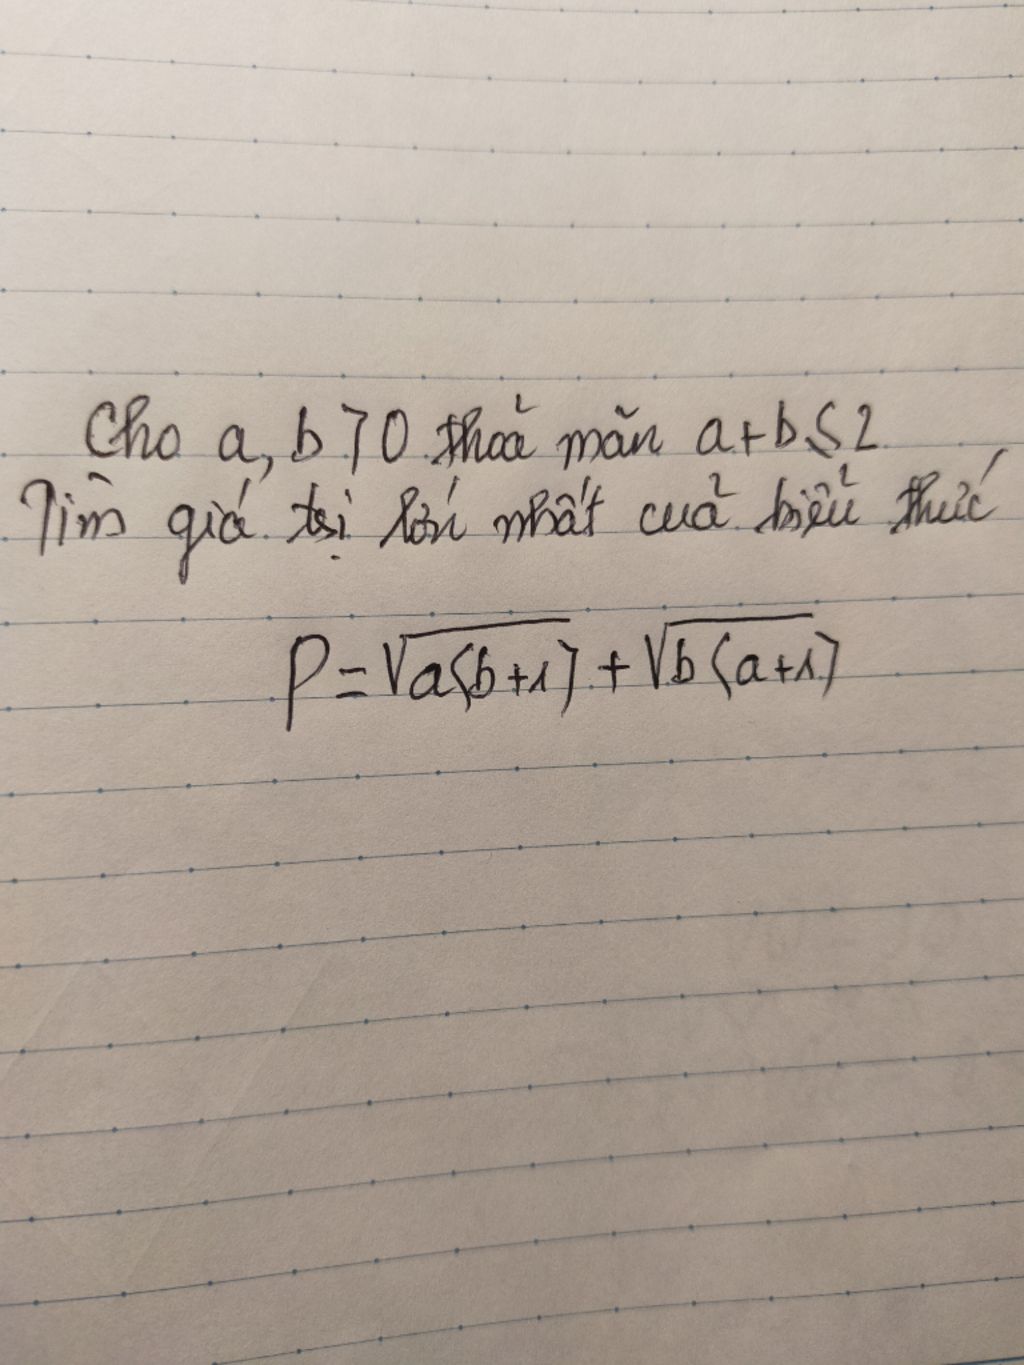 Cho a, b > 0 thoả mãn a+b ≤ 2
Tìm giá trị lớn nhất cuả biểu thức
P = √a(b+1) + √b(a+1)